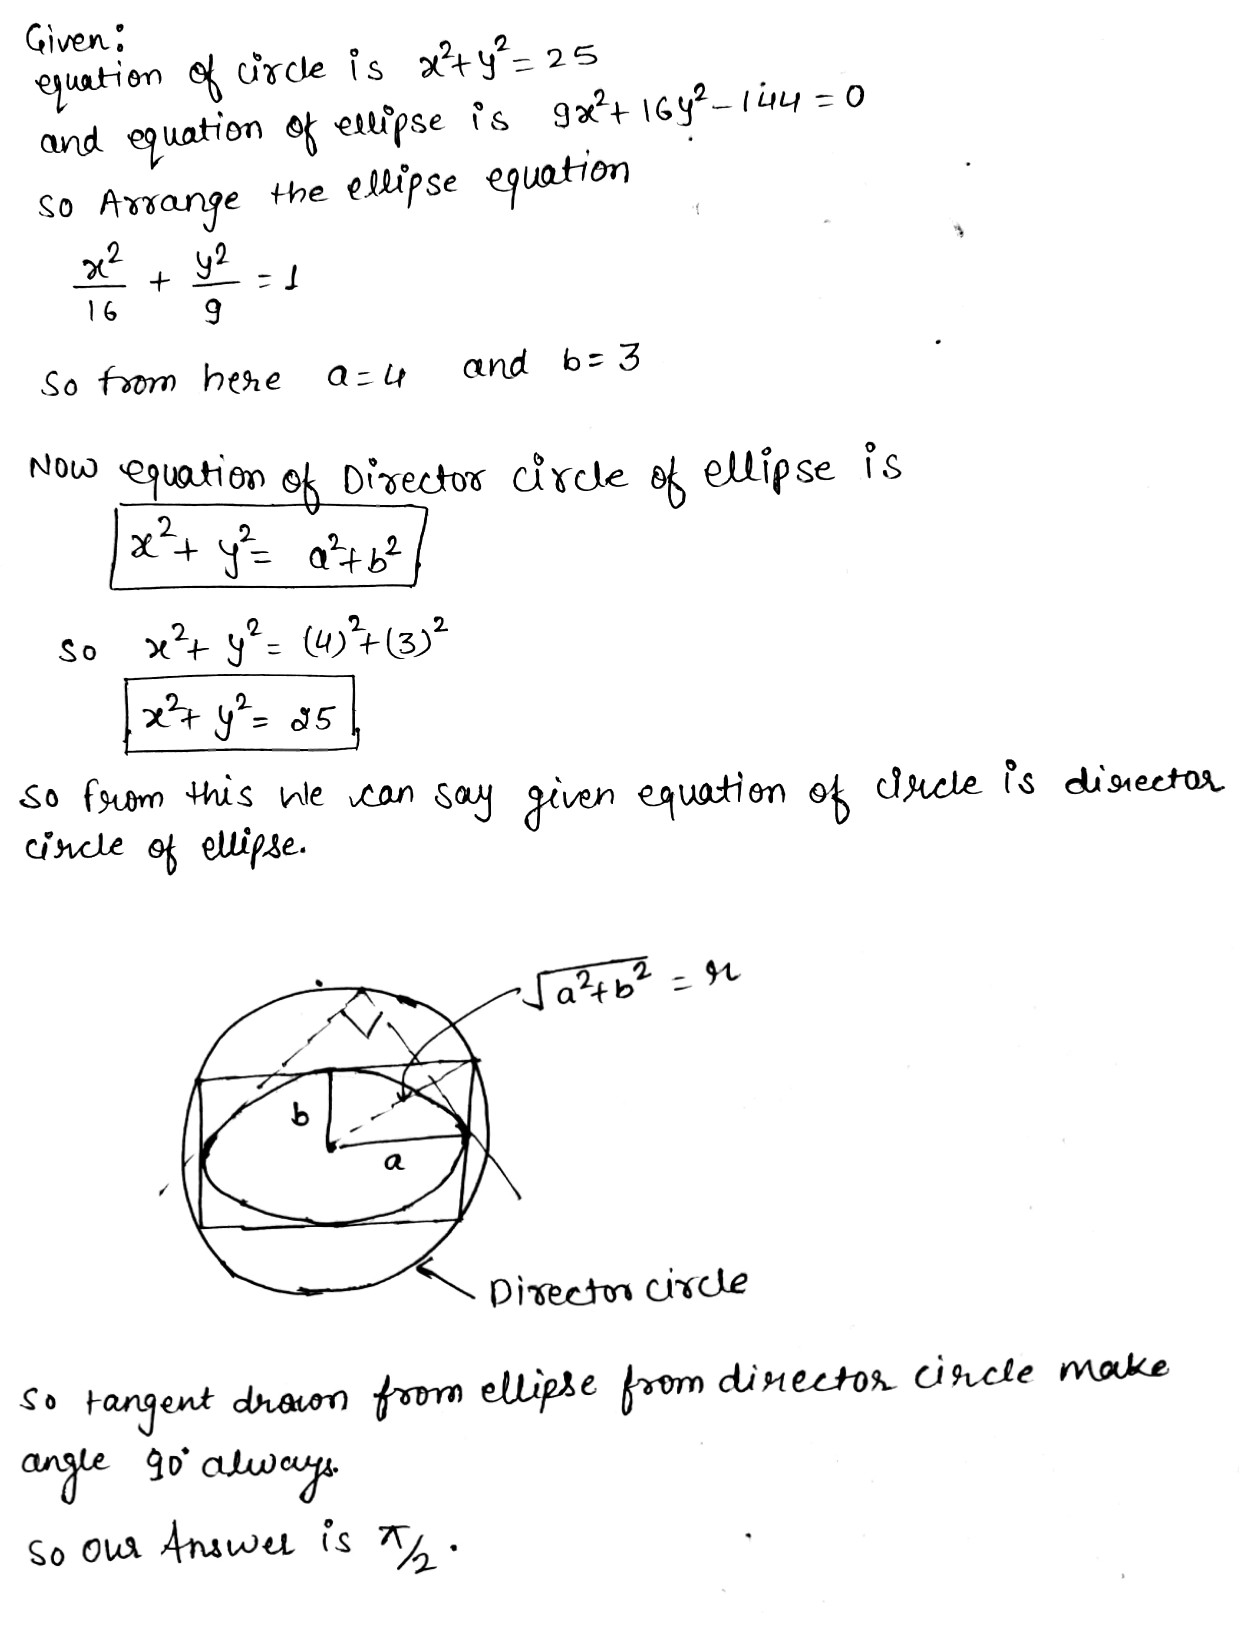 Given:
equation of circle is x²+y²=25
and equation of ellipse is 9x²+16y²-144=0
so Arrange the ellipse equation
x²/16 + y²/9 = 1
So from here a=4 and b=3
Now equation of Director circle of ellipse is
x²+y²= a²+b²
So x²+y²= (4)²+(3)²
x²+y²= 25
so from this we can say given equation of circle is director
circle of ellipse.
√a²+b² = r
b
a
Director circle
so tangent drawon from ellipse from director circle make
angle 90° always.
So our Answer is π/2.